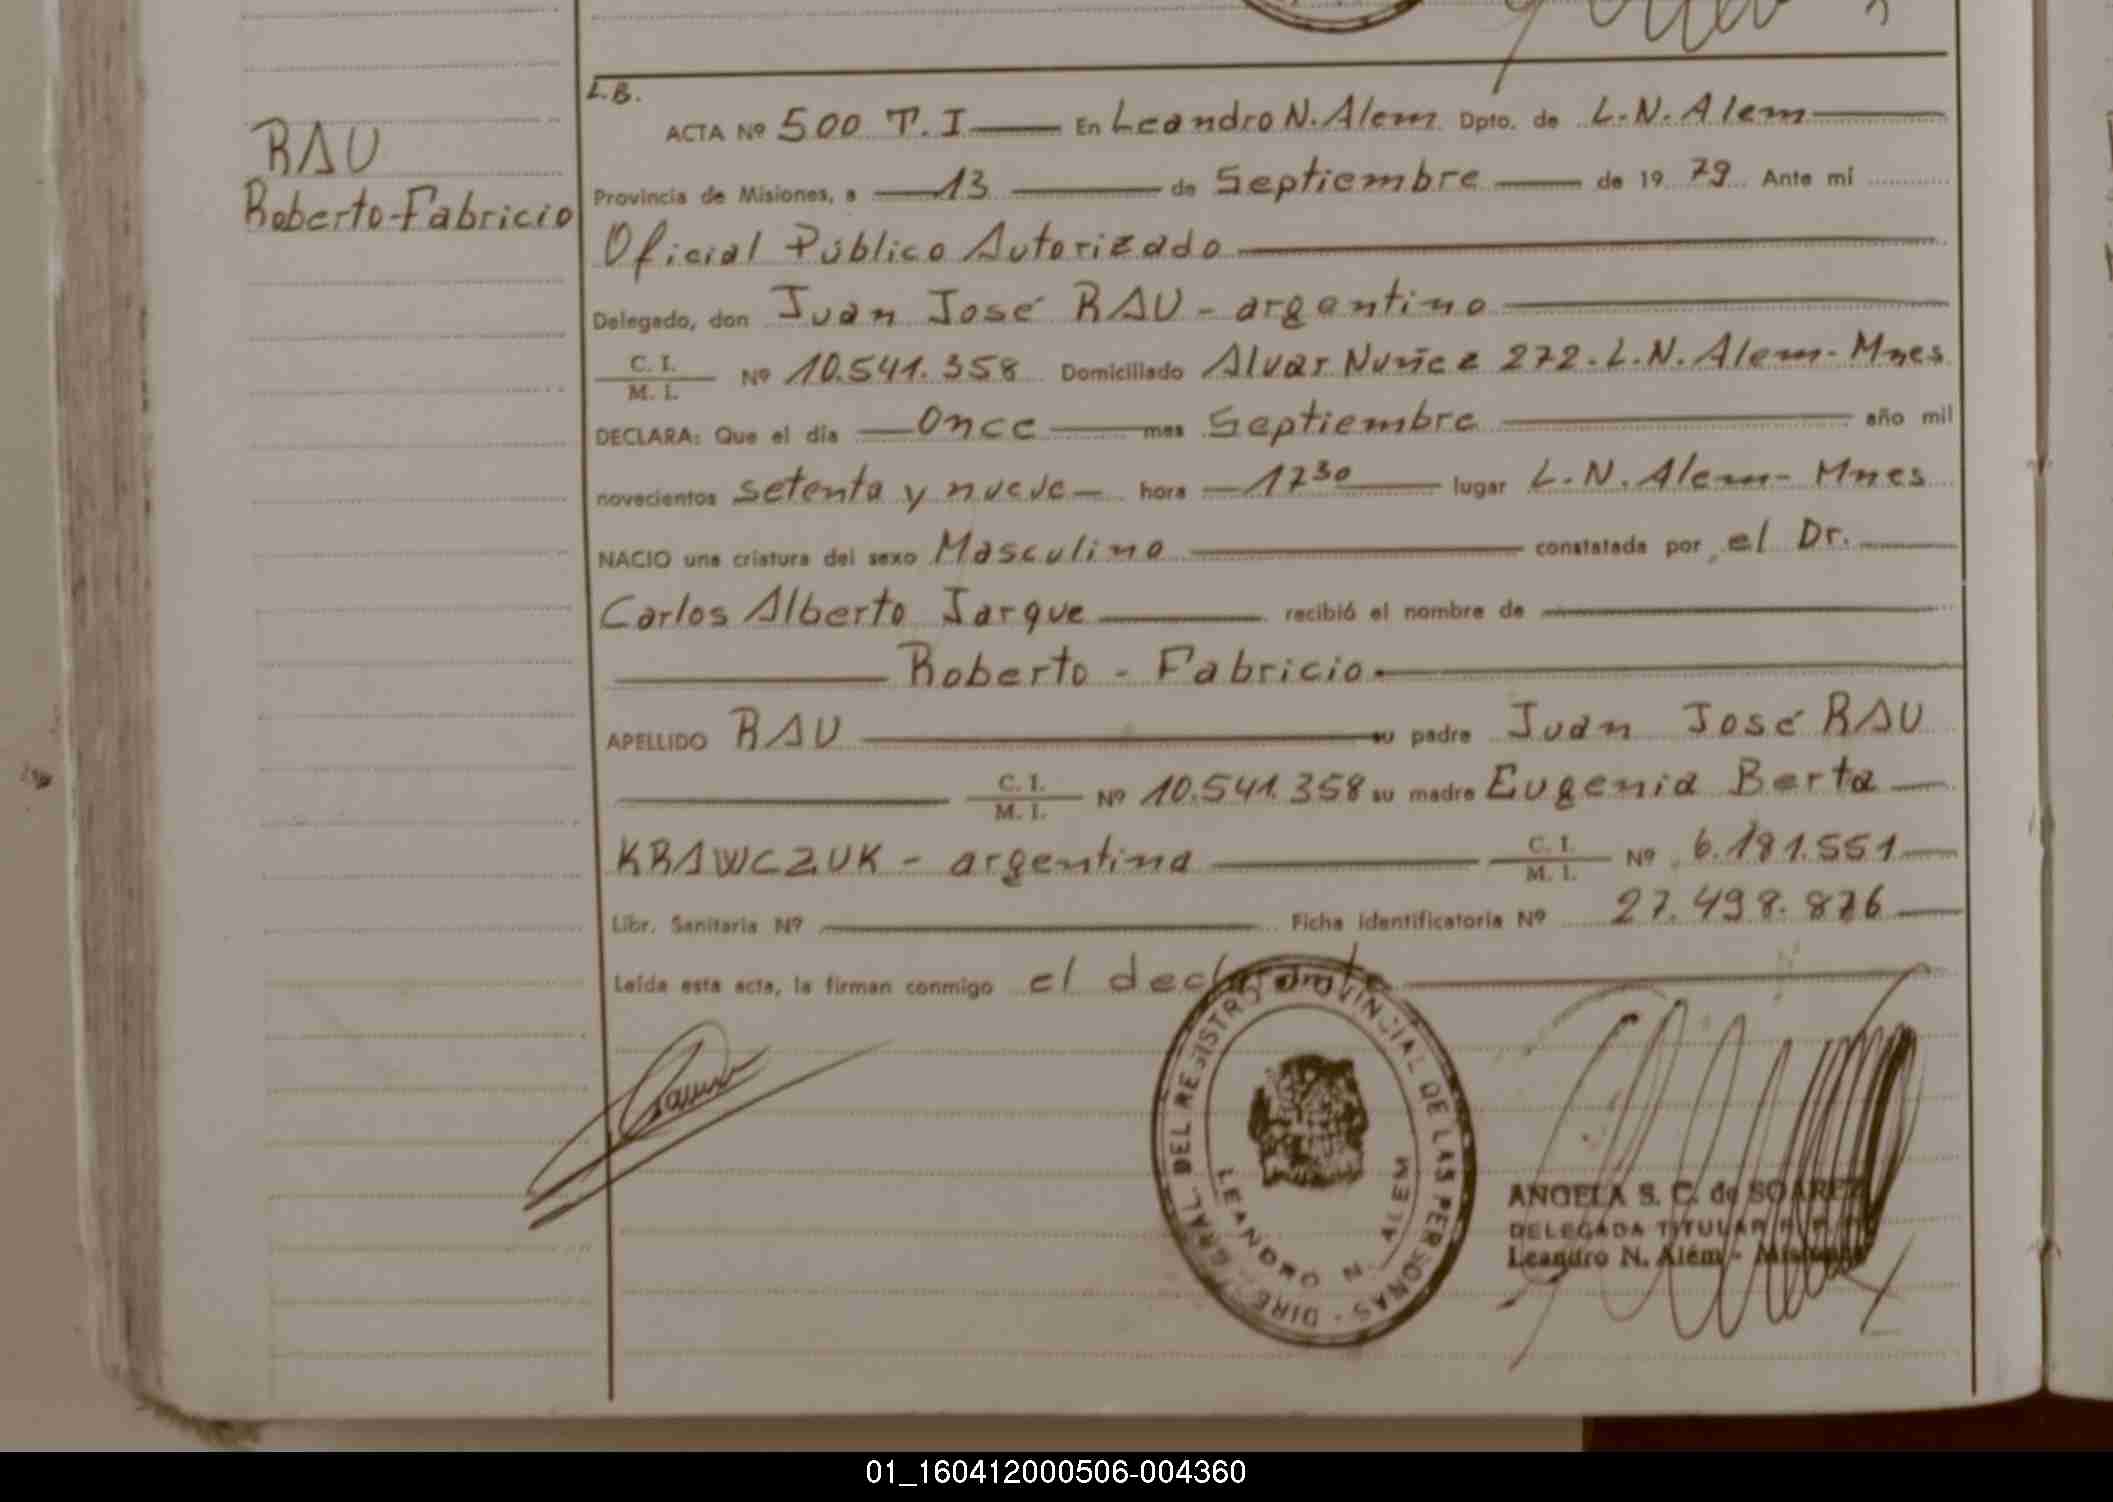 L.B.
RAU
Roberto-Fabricio
ACTA Nº 500 T. I En Leandro N. Alem Dpto. de L. N. Alem
Provincia de Misiones, a 13 de Septiembre de 1979 Ante mi
Oficial Público Autorizado
Delegado, don Juan José RAU - argentino
C. I. / M. I. Nº 10.541.358 Domiciliado Alvar Nuñez 272. L. N. Alem - Mnes
DECLARA: Que el día Once mes Septiembre año mil
novecientos setenta y nueve hora 17 30 lugar L. N. Alem - Mnes
NACIO una criatura del sexo Masculino constatada por el Dr.
Carlos Alberto Jarque recibió el nombre de
Roberto - Fabricio
APELLIDO RAU su padre Juan José RAU
C. I. / M. I. Nº 10.541.358 su madre Eugenia Berta
KRAWCZUK - argentina C. I. / M. I. Nº 6.181.551
Libr. Sanitaria Nº Ficha Identificatoria Nº 27.498.876
Leída esta acta, la firman conmigo el declarante
DIRE. GRAL. DEL REGISTRO PROVINCIAL DE LAS PERSONAS
LEANDRO N. ALEM
ANGELA S. C. de SOAREZ
DELEGADA TITULAR
Leandro N. Além - Misiones
01_160412000506-004360